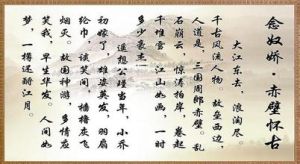 念奴娇·赤壁怀古
大江东去，浪淘尽。
千古风流人物。故垒西边，
人道是，三国周郎赤壁。乱
石崩云，惊涛拍岸，卷起
千堆雪。江山如画，一时
多少豪杰。
遥想公瑾当年，小乔
初嫁了，雄姿英发，羽扇
纶巾，谈笑间，樯橹灰飞
烟灭。故国神游，多情应
笑我，早生华发。人间如
梦，一樽还酹江月。